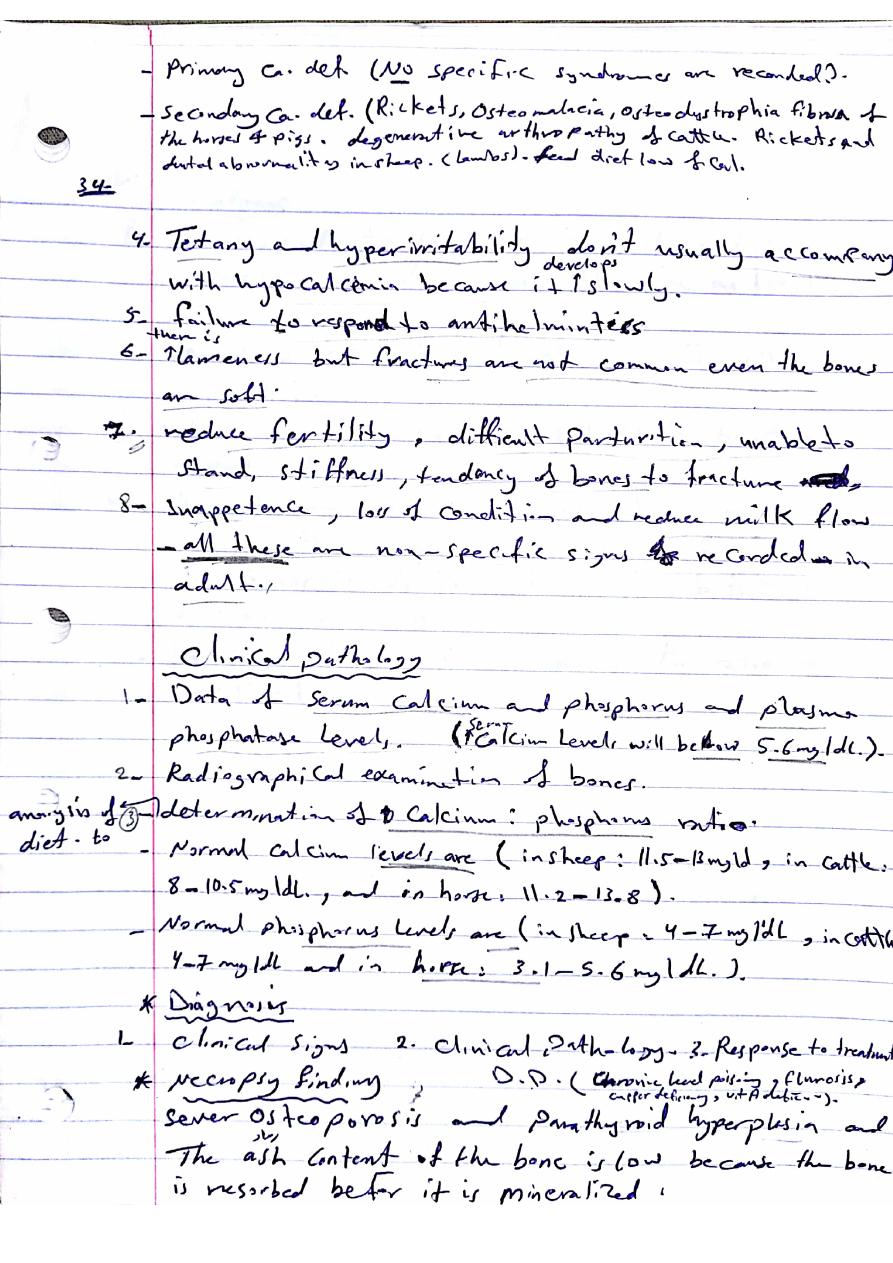 - Primary Ca. def. (No specific syndromes are recorded).
- Secondary Ca. def. (Rickets, Osteomalacia, osteodystrophia fibrosa of
the horses & pigs. degenerative arthropathy of cattle. Rickets and
dental abnormality in sheep. (lambs). feed diet low of cal.
34-
4- Tetany and hyperirritability don't usually accompany
develops
with hypocalcemia because it ↑ slowly.
5- failure to respond to antihelmintics
there is
6- ↑ lameness but fractures are not common even the bones
are soft.
7. reduce fertility, difficult parturition, unable to
stand, stiffness, tendency of bones to fracture
8- Inappetence, loss of condition and reduce milk flow
- all these are non-specific signs recorded in
adult.
Clinical pathology
1- Data of serum calcium and phosphorus and plasma
phosphatase Levels. (↑ serum Calcium Levels will below 5.6 mg/dL.).
2- Radiographical examination of bones.
analysis of ③- determination of Calcium : phosphorus ratio.
diet. to
- Normal calcium levels are (in sheep: 11.5-13 mg/d, in cattle:
8-10.5 mg/dL., and in horse: 11.2-13.8).
- Normal phosphorus Levels are (in sheep = 4-7 mg/dL, in cattle
4-7 mg/dL and in horse: 3.1-5.6 mg/dL.).
* Diagnosis
1. Clinical signs 2. Clinical pathology. 3. Response to treatment
* Necropsy finding D.D. (Chronic lead poising, flurosis,
copper deficiency, vit A
sever Osteoporosis and parathyroid hyperplasia and
The ash content of the bone is low because the bone
is resorbed befor it is mineralized.